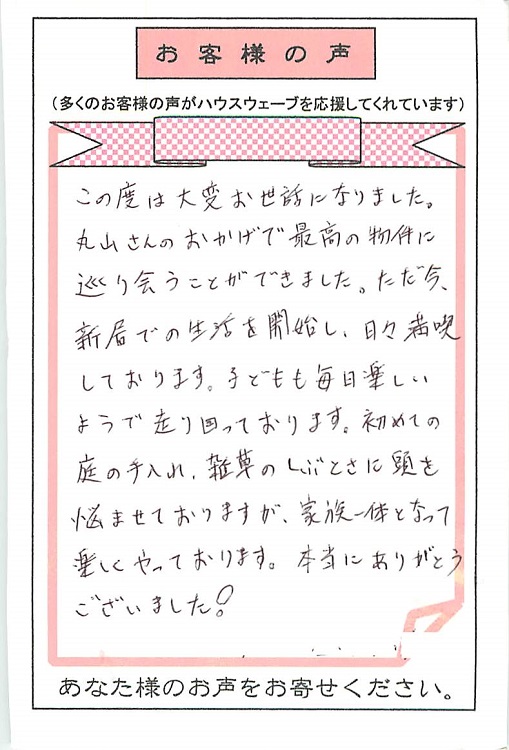 お客様の声
（多くのお客様の声がハウスウェーブを応援してくれています）
この度は大変お世話になりました。
丸山さんのおかげで最高の物件に
巡り会うことができました。ただ今、
新居での生活を開始し、日々満喫
しております。子どもも毎日楽しい
ようで走り回っております。初めての
庭の手入れ、雑草のしぶとさに頭を
悩ませておりますが、家族一体となって
楽しくやっております。本当にありがとう
ございました！
あなた様のお声をお寄せください。